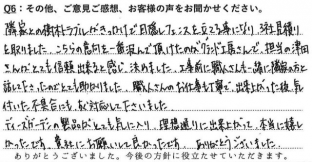 Q6：その他、ご意見ご感想、お客様の声をお聞かせください。
隣家との樹木トラブルがきっかけで目隠しフェンスを立てる事になり、3社見積り
を取りました。こちらの意向を一番汲んで頂けたのがグランド工房さんで、担当の澤田
さんがとても信頼出来ると感じ決めました。工事前に職人さんも一緒に隣家の方と
話して下さったのがとても助かりました。職人さんのお仕事も丁寧で、出来上がった後、気
付いた不具合にもすぐ対応して下さいました。
ディーズガーデンの製品がとても気に入り、理想通りに出来上がって、本当に嬉し
かったです。貴社にお願いして良かったです。ありがとうございました。
ありがとうございました。今後の方針に役立たせていただきます。